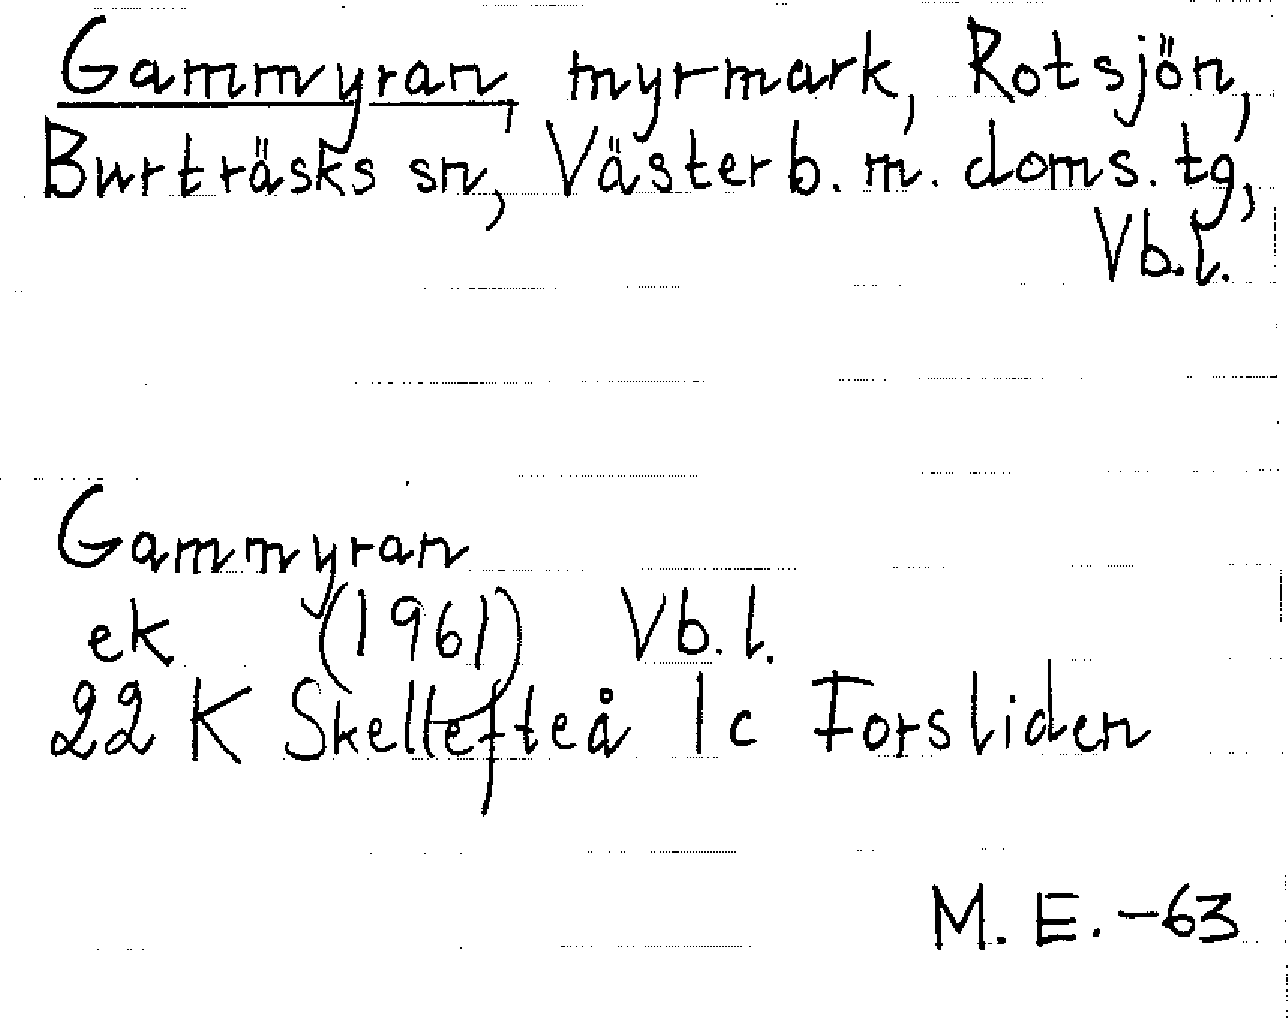 Gammyran, myrmark, Rotsjön,
Burträsks sn, Västerb. m. doms. tg,
Vb.l.
Gammyran
ek (1961) Vb. l.
22 K Skellefteå 1c Forsliden
M. E. -63